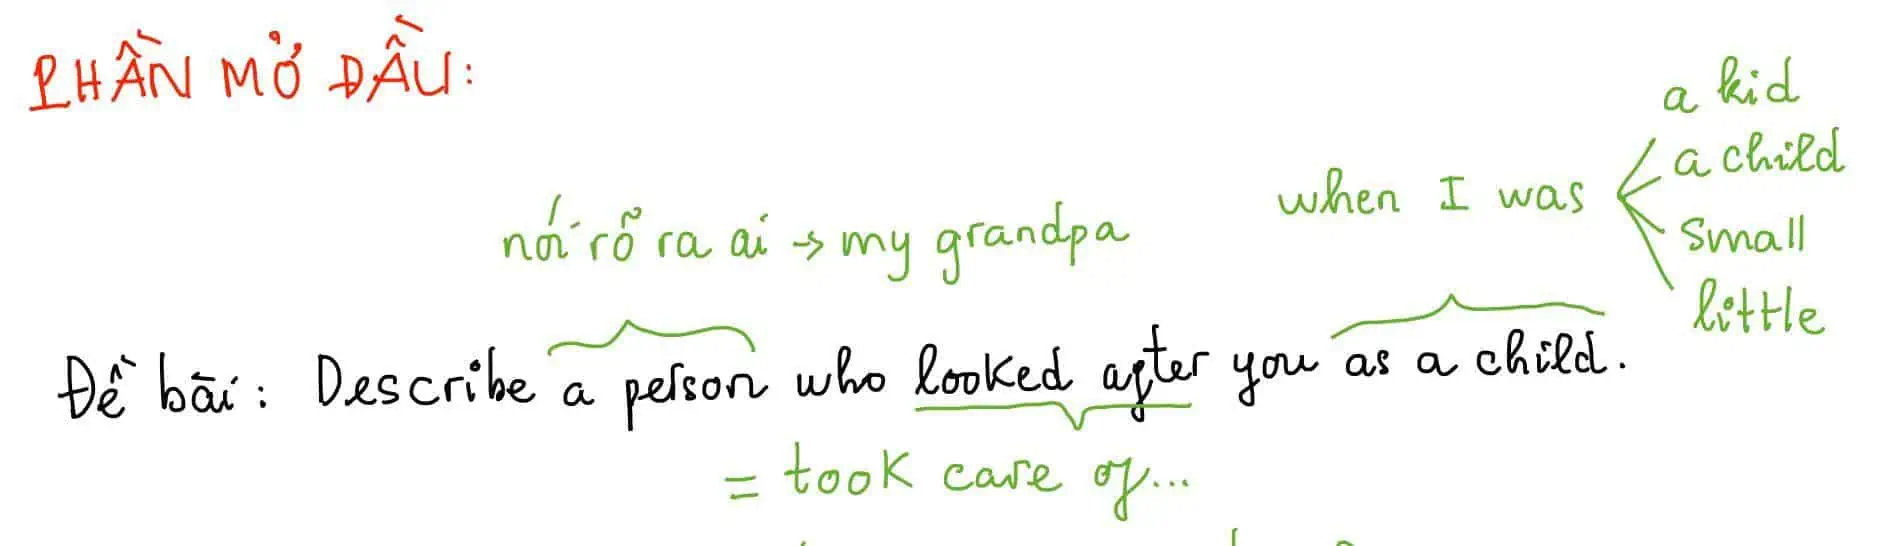 PHẦN MỞ ĐẦU:
a kid
a child
when I was
small
little
nói rõ ra ai → my grandpa
Đề bài: Describe a person who looked after you as a child.
= took care of...